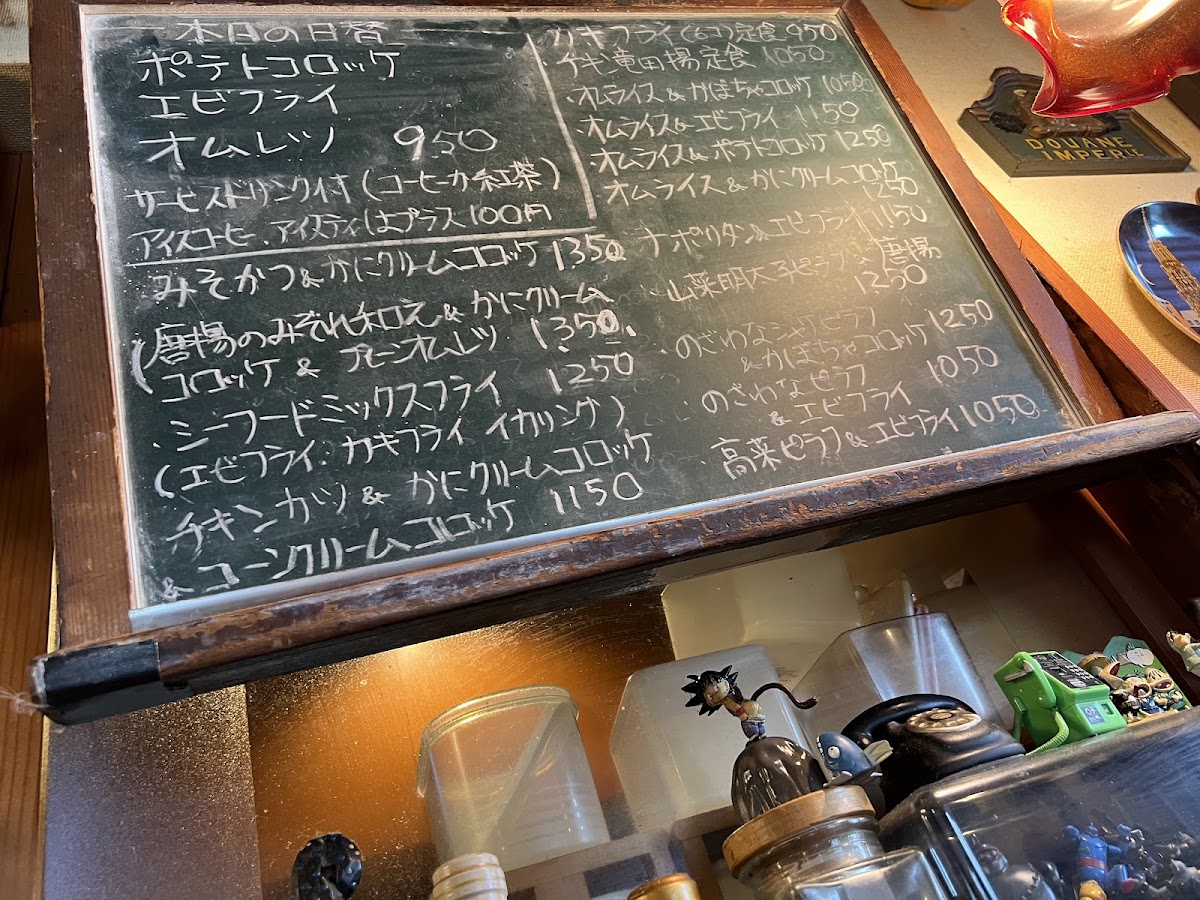 本日の日替
ポテトコロッケ
エビフライ
オムレツ 950
サービスドリンク付 (コーヒーか紅茶)
アイスコーヒー、アイスティーはプラス100円
みそかつ&かにクリームコロッケ 1350
唐揚のみぞれ和え&かにクリーム
コロッケ & プレーンオムレツ 1350
・シーフードミックスフライ 1250
(エビフライ、カキフライ イカリング)
チキンカツ& かにクリームコロッケ
& コーンクリームコロッケ 1150
カキフライ(6コ)定食 950
チキン竜田揚定食 1050
・オムライス&かぼちゃコロッケ 1050
・オムライス&エビフライ 1150
オムライス&ポテトコロッケ 1250
オムライス&かにクリームコロッケ
1250
ナポリタン&エビフライ 1150
山菜明太子ピラフ&唐揚
1250
・のざわなシャケピラフ
&かぼちゃコロッケ 1250
のざわなピラフ
& エビフライ 1050
・高菜ピラフ&エビフライ 1050
DOUANE
IMPERIE